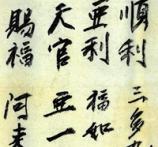 順利 三多
亞利 福如
天官 亞一
賜福 阿